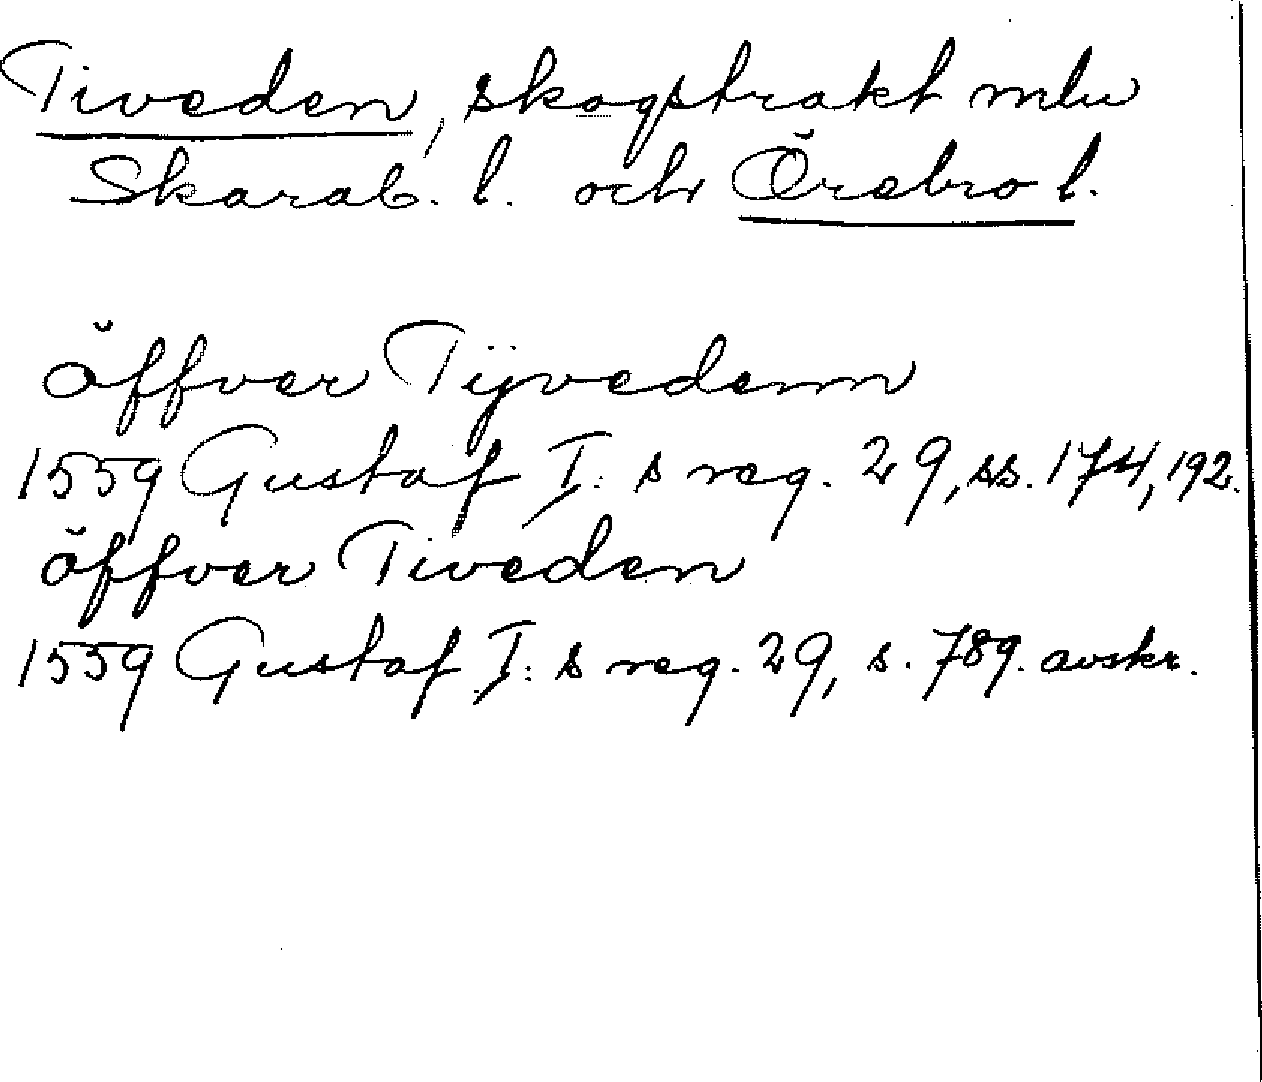 Tiveden, skogstrakt mlu
Skarab. l. och Örebro l.
öffver Tijvedenn
1559 Gustaf I:s reg. 29, ss. 174, 192.
öffver Tiveden
1559 Gustaf I:s reg. 29, s. 789. avskr.